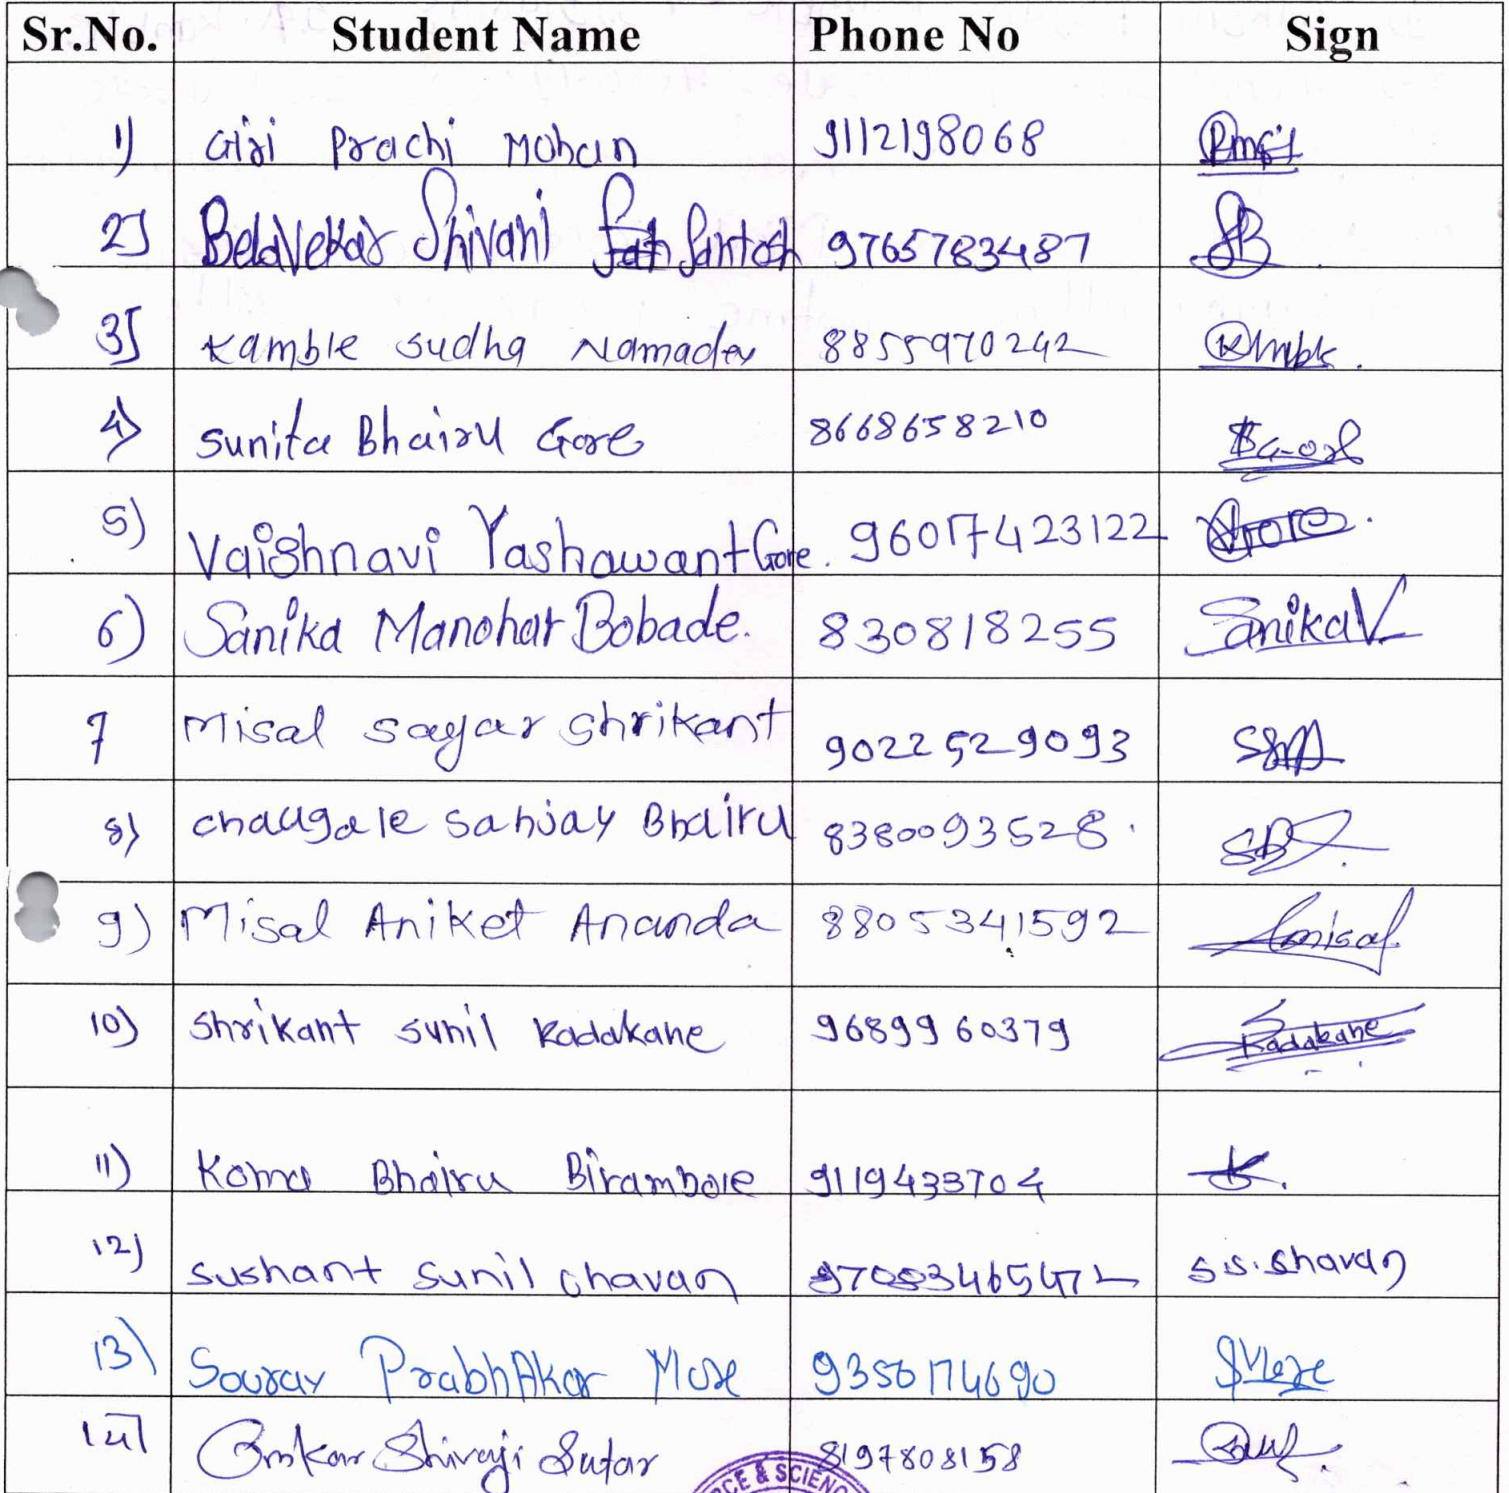 Sr.No. Student Name Phone No Sign
1) Giri Prachi Mohan 9112198068
2] Belavekar Shivani Santosh 9765783487 SB
3] Kamble Sudha Namadev 8855970242
4) Sunita Bhairu Gore 8668658210
5) Vaishnavi Yashawant Gore. 96017423122
6) Sanika Manohar Bobade. 830818255 Sanika
7 Misal Sagar Shrikant 9022529093
8) Chaugale Sanjay Bhairu 8380093528.
9) Misal Aniket Ananda 8805341592 Amisal
10) Shrikant Sunil Kadakane 9689960379 Kadakane
11) Komal Bhairu Birambole 9119433704 K.
12) Sushant Sunil Chavan S.S.Shavan
13) Sourav PrabhAkar More 9356174690 SMore
14] Omkar Shivaji Sutar 8197808158
CE & SCIEN